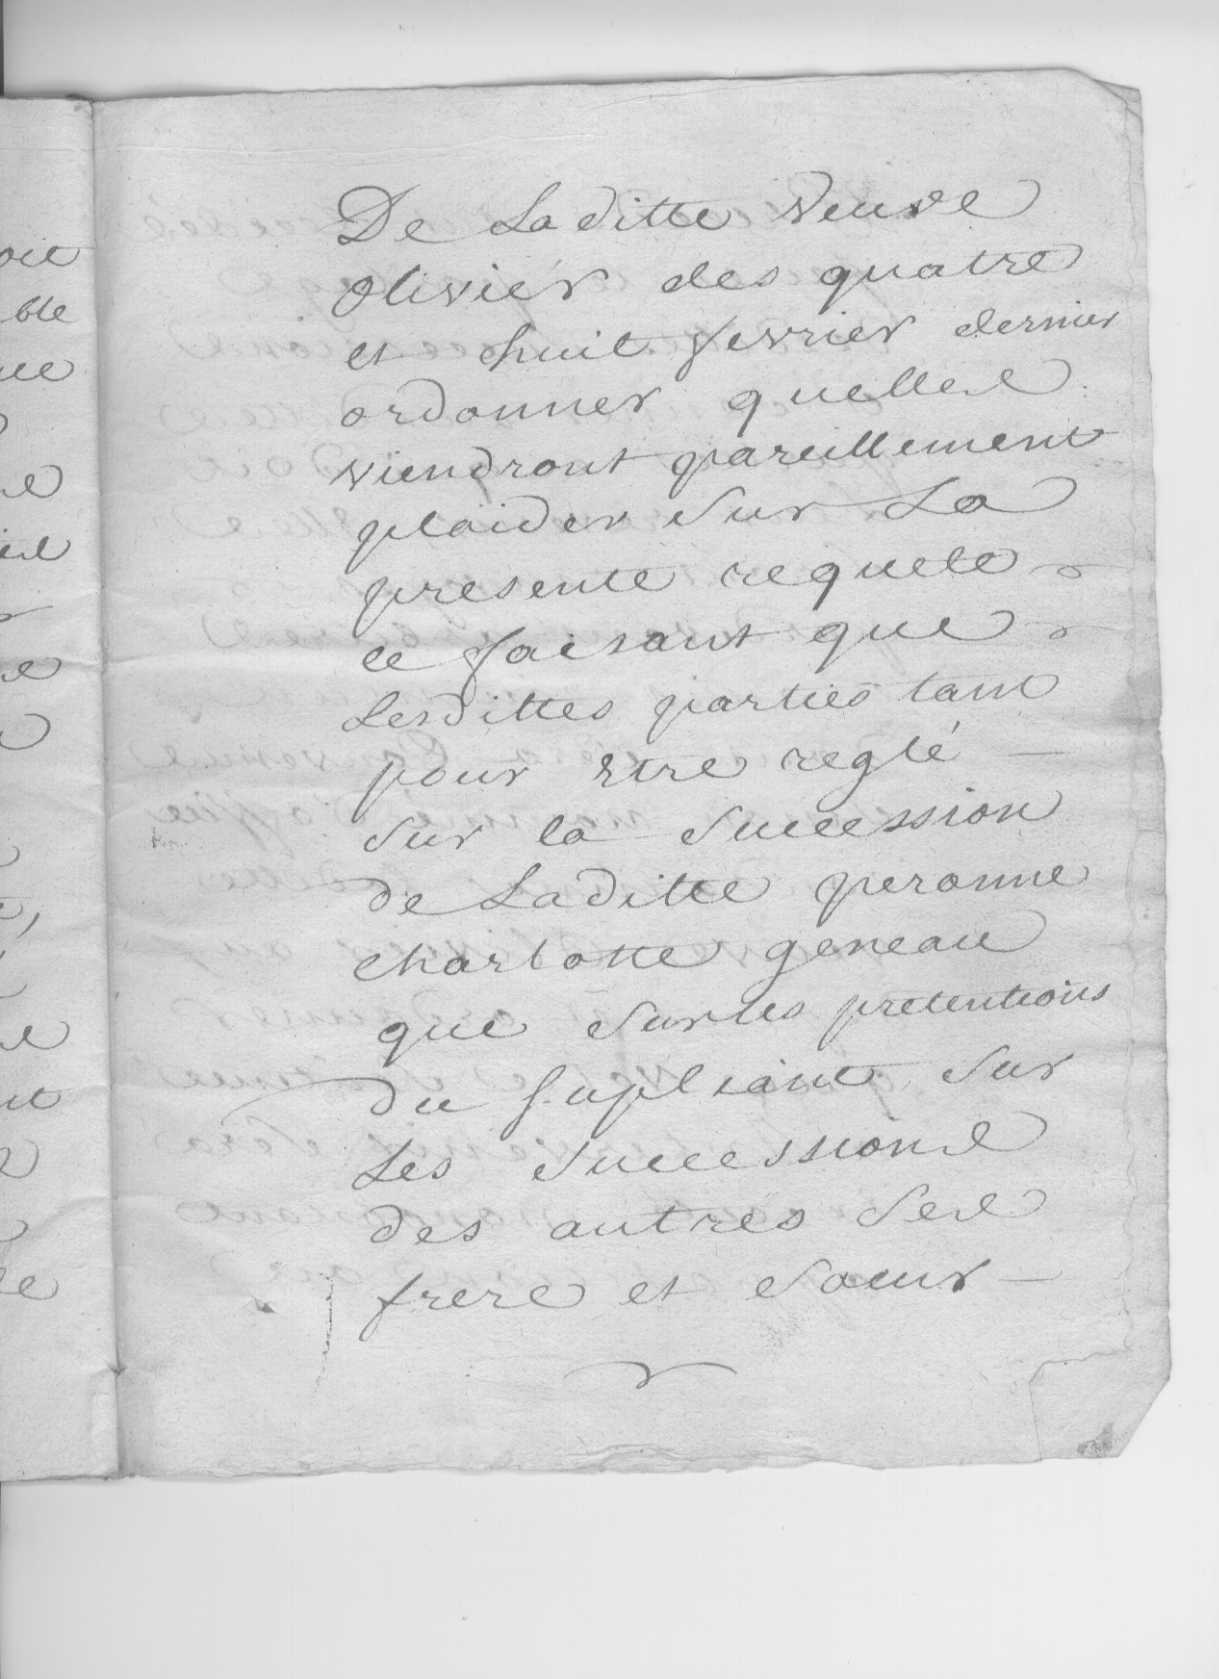 De Laditte veuve
Olivier des quatre
et huit fevrier dernier
ordonner quelles
viendront pareillement
plaider sur La
presente requete
ce faisant que
Lesdittes parties tant
pour etre reglé
sur la succession
de Laditte peronne
charlotte geneau
que surles pretentions
du supliant sur
Les successions
des autres ses
frere et soeur